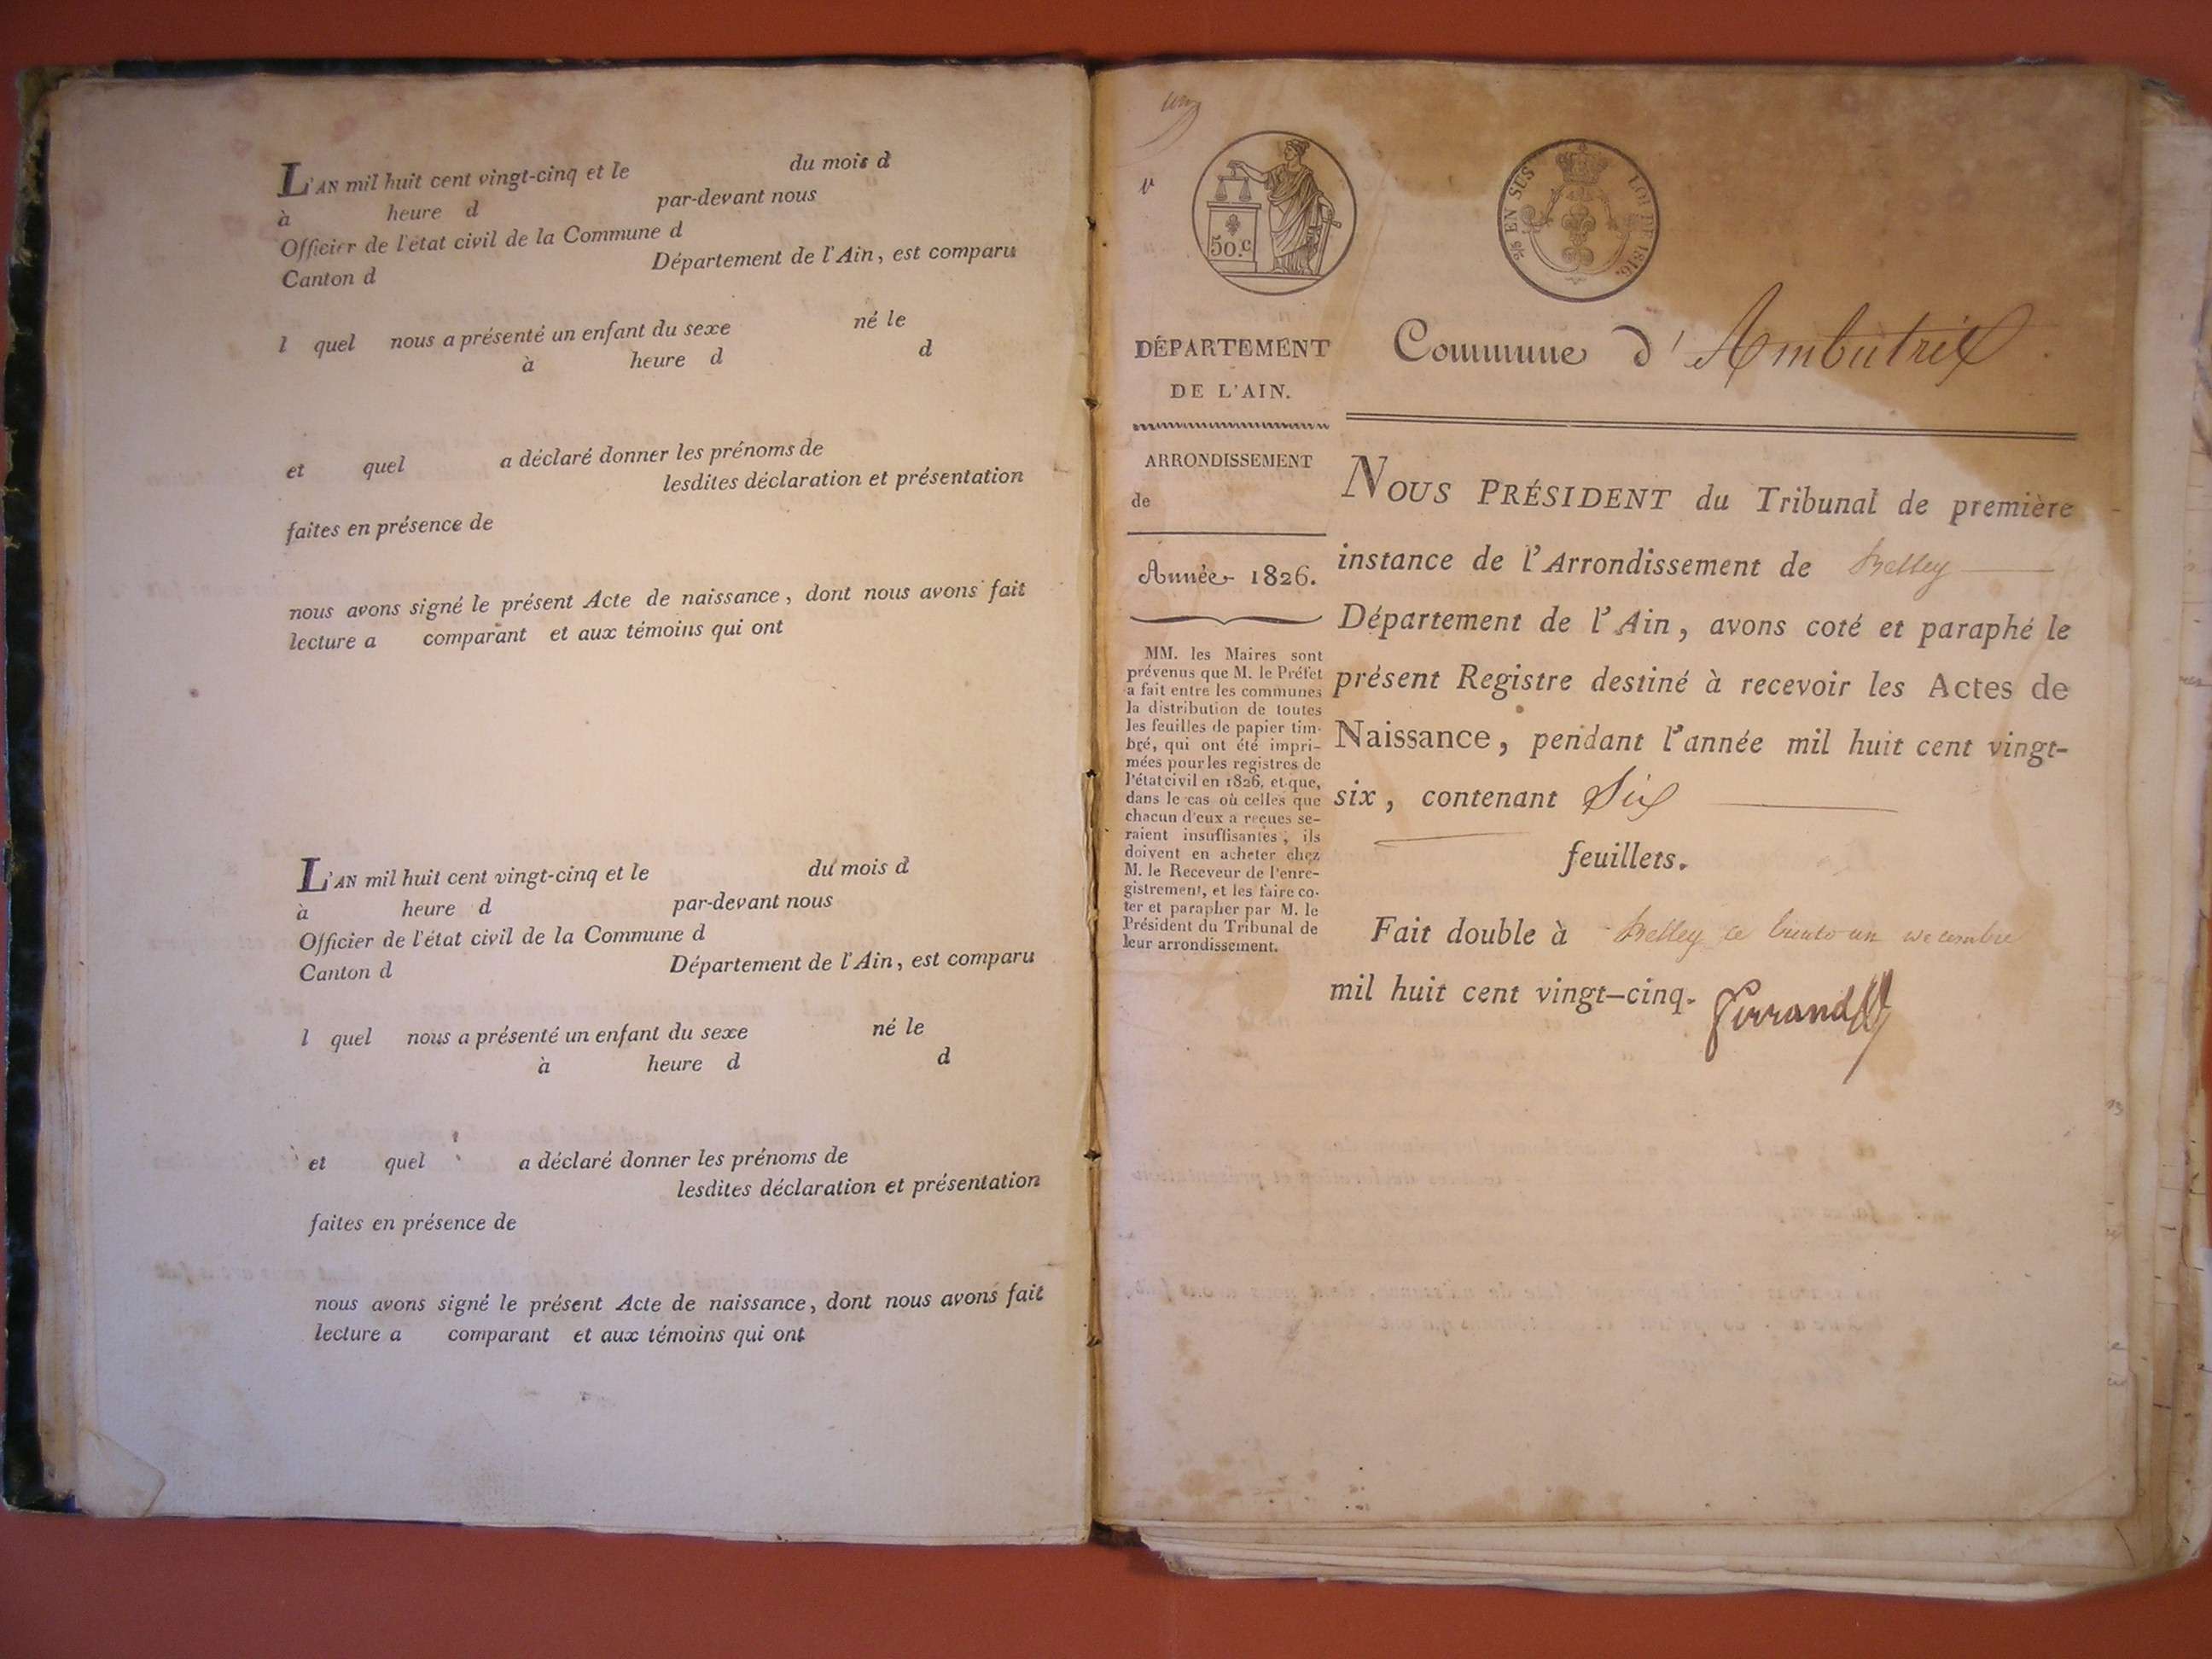 L'AN mil huit cent vingt-cinq et le du mois d
à heure d par-devant nous
Officier de l'état civil de la Commune d
Canton d Département de l'Ain, est comparu
l quel nous a présenté un enfant du sexe né le
à heure d d
et quel a déclaré donner les prénoms de
lesdites déclaration et présentation
faites en présence de
nous avons signé le présent Acte de naissance, dont nous avons fait
lecture a comparant et aux témoins qui ont
L'AN mil huit cent vingt-cinq et le du mois d
à heure d par-devant nous
Officier de l'état civil de la Commune d
Canton d Département de l'Ain, est comparu
l quel nous a présenté un enfant du sexe né le
à heure d d
et quel a déclaré donner les prénoms de
lesdites déclaration et présentation
faites en présence de
nous avons signé le présent Acte de naissance, dont nous avons fait
lecture a comparant et aux témoins qui ont
50.c
EN SUS LOI DE 1816.
DÉPARTEMENT
DE L'AIN.
ARRONDISSEMENT
de
Année 1826.
MM. les Maires sont
prévenus que M. le Préfet
a fait entre les communes
la distribution de toutes
les feuilles de papier tim-
bré, qui ont été impri-
mées pour les registres de
l'état civil en 1826, et que,
dans le cas où celles que
chacun d'eux a reçues se-
raient insuffisantes, ils
doivent en acheter chez
M. le Receveur de l'enre-
gistrement, et les faire co-
ter et parapher par M. le
Président du Tribunal de
leur arrondissement.
Commune d'Ambutrix
NOUS PRÉSIDENT du Tribunal de première
instance de l'Arrondissement de Belley
Département de l'Ain, avons coté et paraphé le
présent Registre destiné à recevoir les Actes de
Naissance, pendant l'année mil huit cent vingt-
six, contenant Six
feuillets.
Fait double à Belley ce trente un decembre
mil huit cent vingt-cinq.